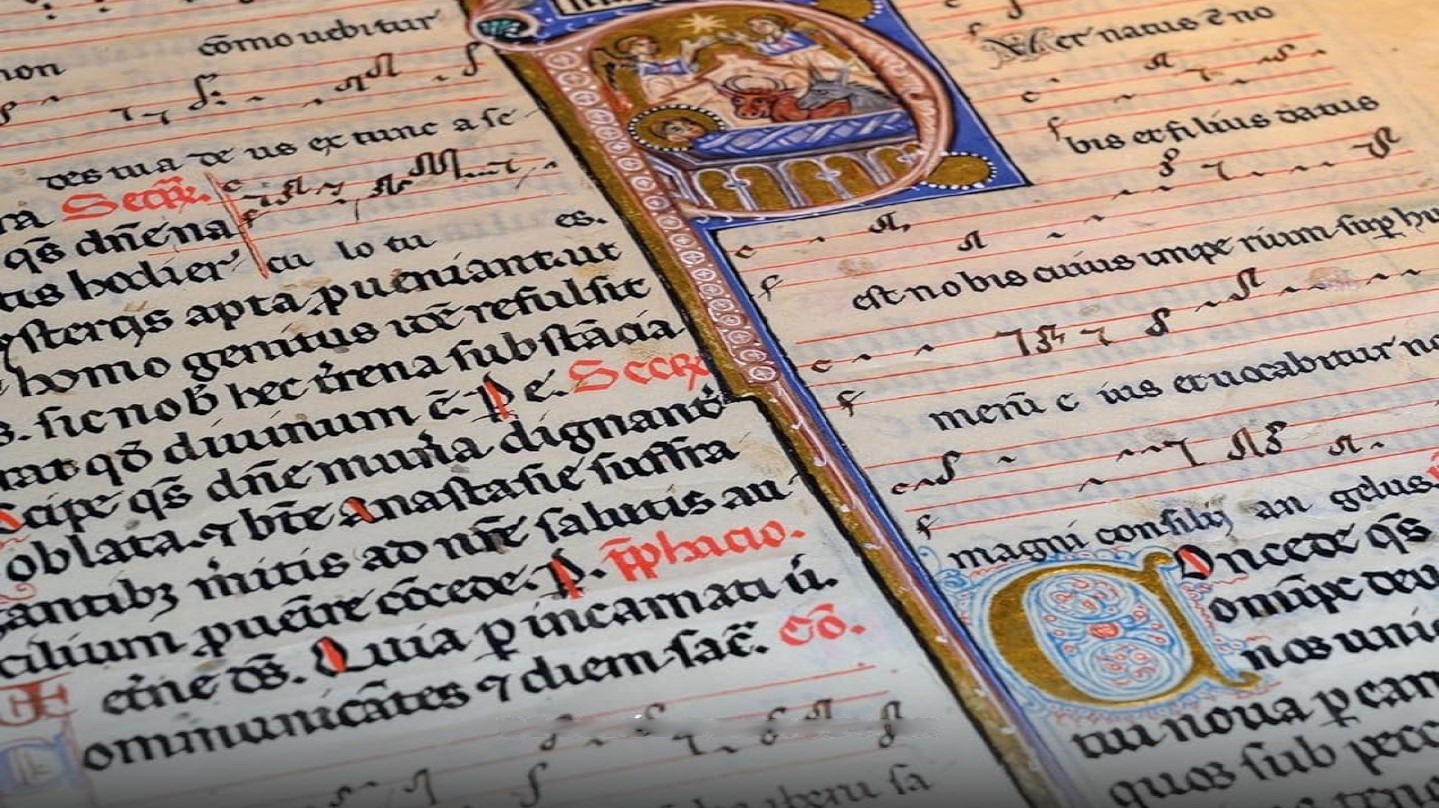 non cōmo uebitur
des tua de us ex tunc a se
ra Secr̄.
qs̄ dn̄e na
tis hodier' cu lo tu es.
apta ꝓueniant. ut
homo genitus idē refulsit
sic nob̄ hec t̄rena substācia
qd̄ diuinum ē. P e. Secr̄
cipe qs̄ dn̄e mun̄a dignant̄
oblata. ⁊ bt̄e Anastasie suffra
gantibꝫ m̄itis ad nr̄e salutis au
cilium ꝓuēire cōcede. P. P̄phacio.
et̄ne ds̄. Quia p incarnati ū.
ommunicātes ⁊ diem sac̄. Cō.
er natus ē no
bis et filius datus
est nobis cuius impe rium sup hu
merū e ius et uocabitur no
magni consilij an gelus.
Oncede qs̄
omīpc deu
nos uni
tui noua p car
quos sub